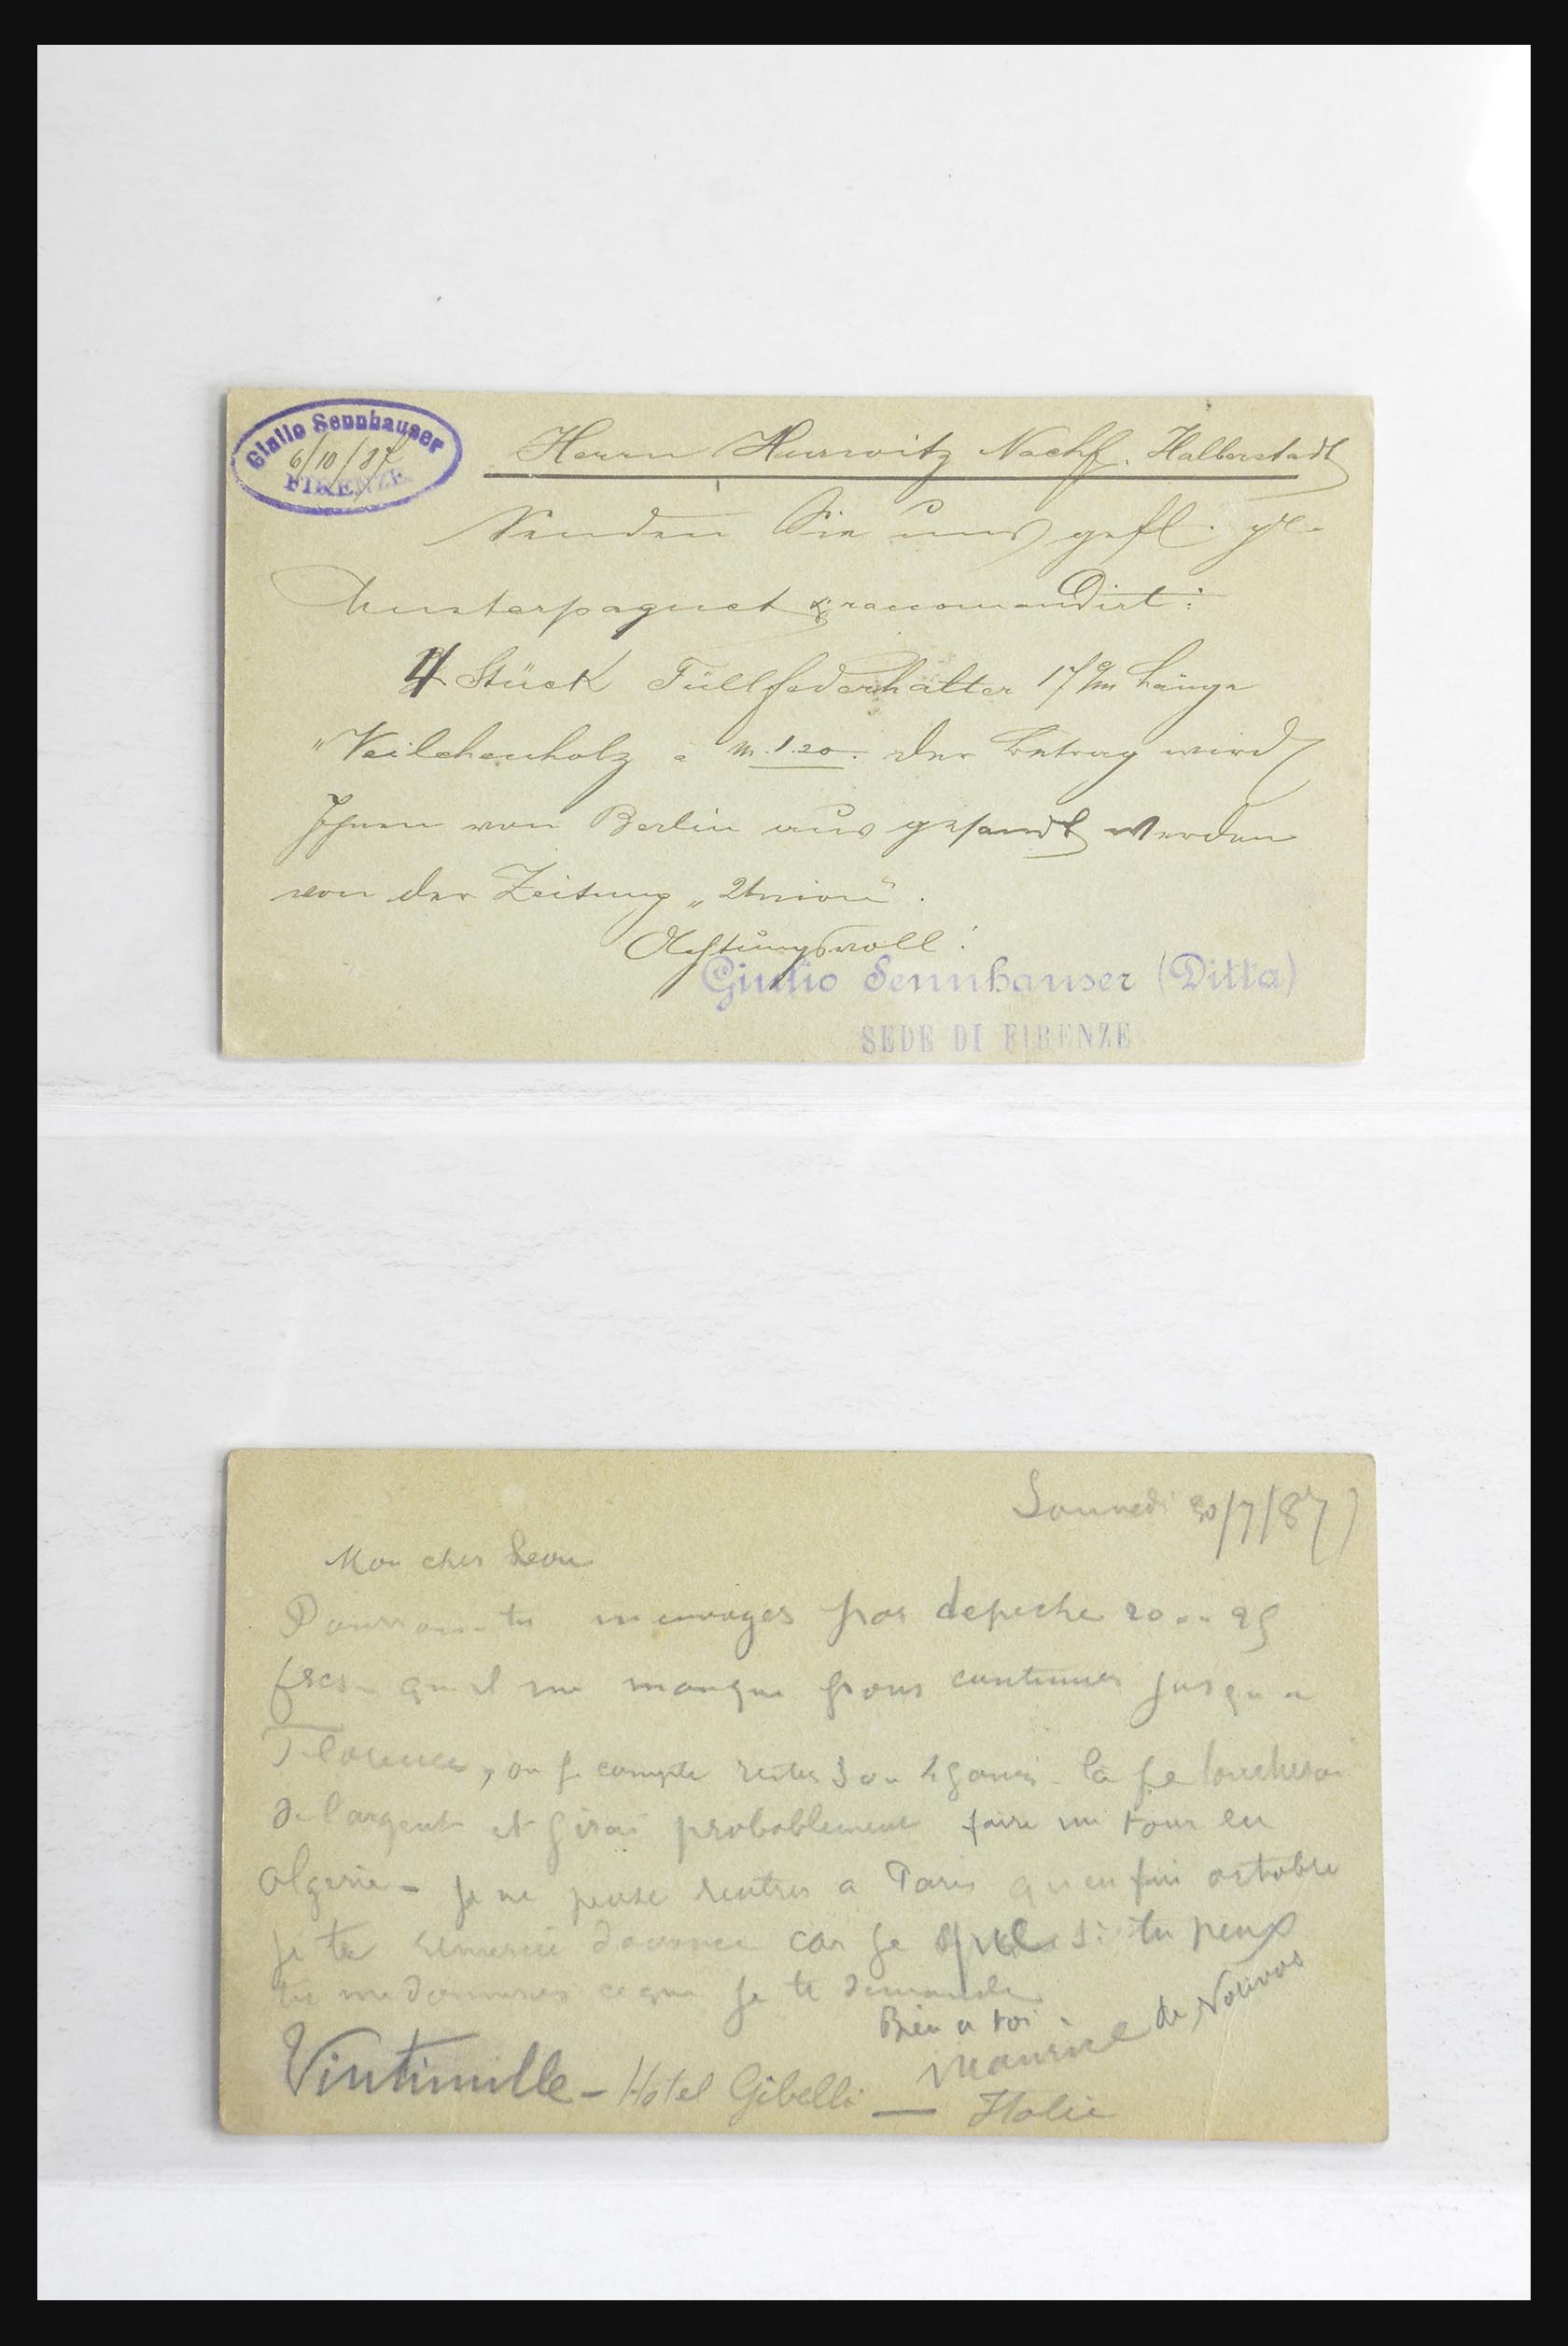 Giulio Sennhauser
6/10/87
FIRENZE
Herrn Hurwitz Nachf. Halberstadt
Senden Sie uns gefl. pr.
Musterpaquet & racomandirt:
4 Stück Füllfederhalter 17 c/m Länge
"Veilchenholz a M. 1.20. der Betrag wird
Ihnen von Berlin aus gesandt werden
von der Zeitung „Union“.
Achtungsvoll!
Giulio Sennhauser (Ditta)
SEDE DI FIRENZE
Samedi 30/7/87
Mon cher Leon
Pourrais-tu m'envoyer par depeche 20 ou 25
frcs qu'il me manque pour continuer jusqu'a
Florence, ou je compte rester 3 ou 4 jours - là je toucherai
de l'argent et j'irai probablement faire un tour en
Algerie - je ne pense rentrer a Paris qu'en fin octobre
je te remercie d'avance car je si tu peux
tu me donneras ce que je te demande
Bien a toi -
Maurice de
Vintimille - Hotel Gibelli — Italie